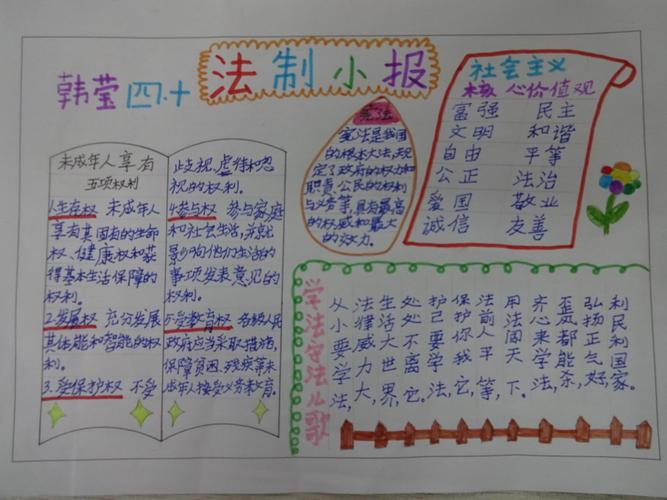 法制小报
韩莹 四.十
未成年人享有
五项权利
1.生存权 未成年人
享有其固有的生命
权、健康权和获
得基本生活保障的
权利。
2.发展权 充分发展
其体能和智能的权利。
3.受保护权 不受
歧视、虐待和忽
视的权利。
4.参与权 参与家庭
和社会生活,并就
影响他们生活的
事项发表意见的
权利。
5.受教育权 各级人民
政府应当采取措施,
保障贫困、残疾等未
成年人接受义务教育。
宪法
宪法是我国
的根本大法,规
定了政府的权力和
职责,公民的权利
与义务等,具有最高
的权威和最大
的效力。
社会主义
核心价值观
富强 民主
文明 和谐
自由 平等
公正 法治
爱国 敬业
诚信 友善
学法守法儿歌
从小要学法,
法律威力大,
生活大世界,
处处不离它。
护己要学法,
保护你我它,
法前人平等,
用法闯天下。
齐心来学法,
歪都能杀,
弘扬正气好,
利民利国家。